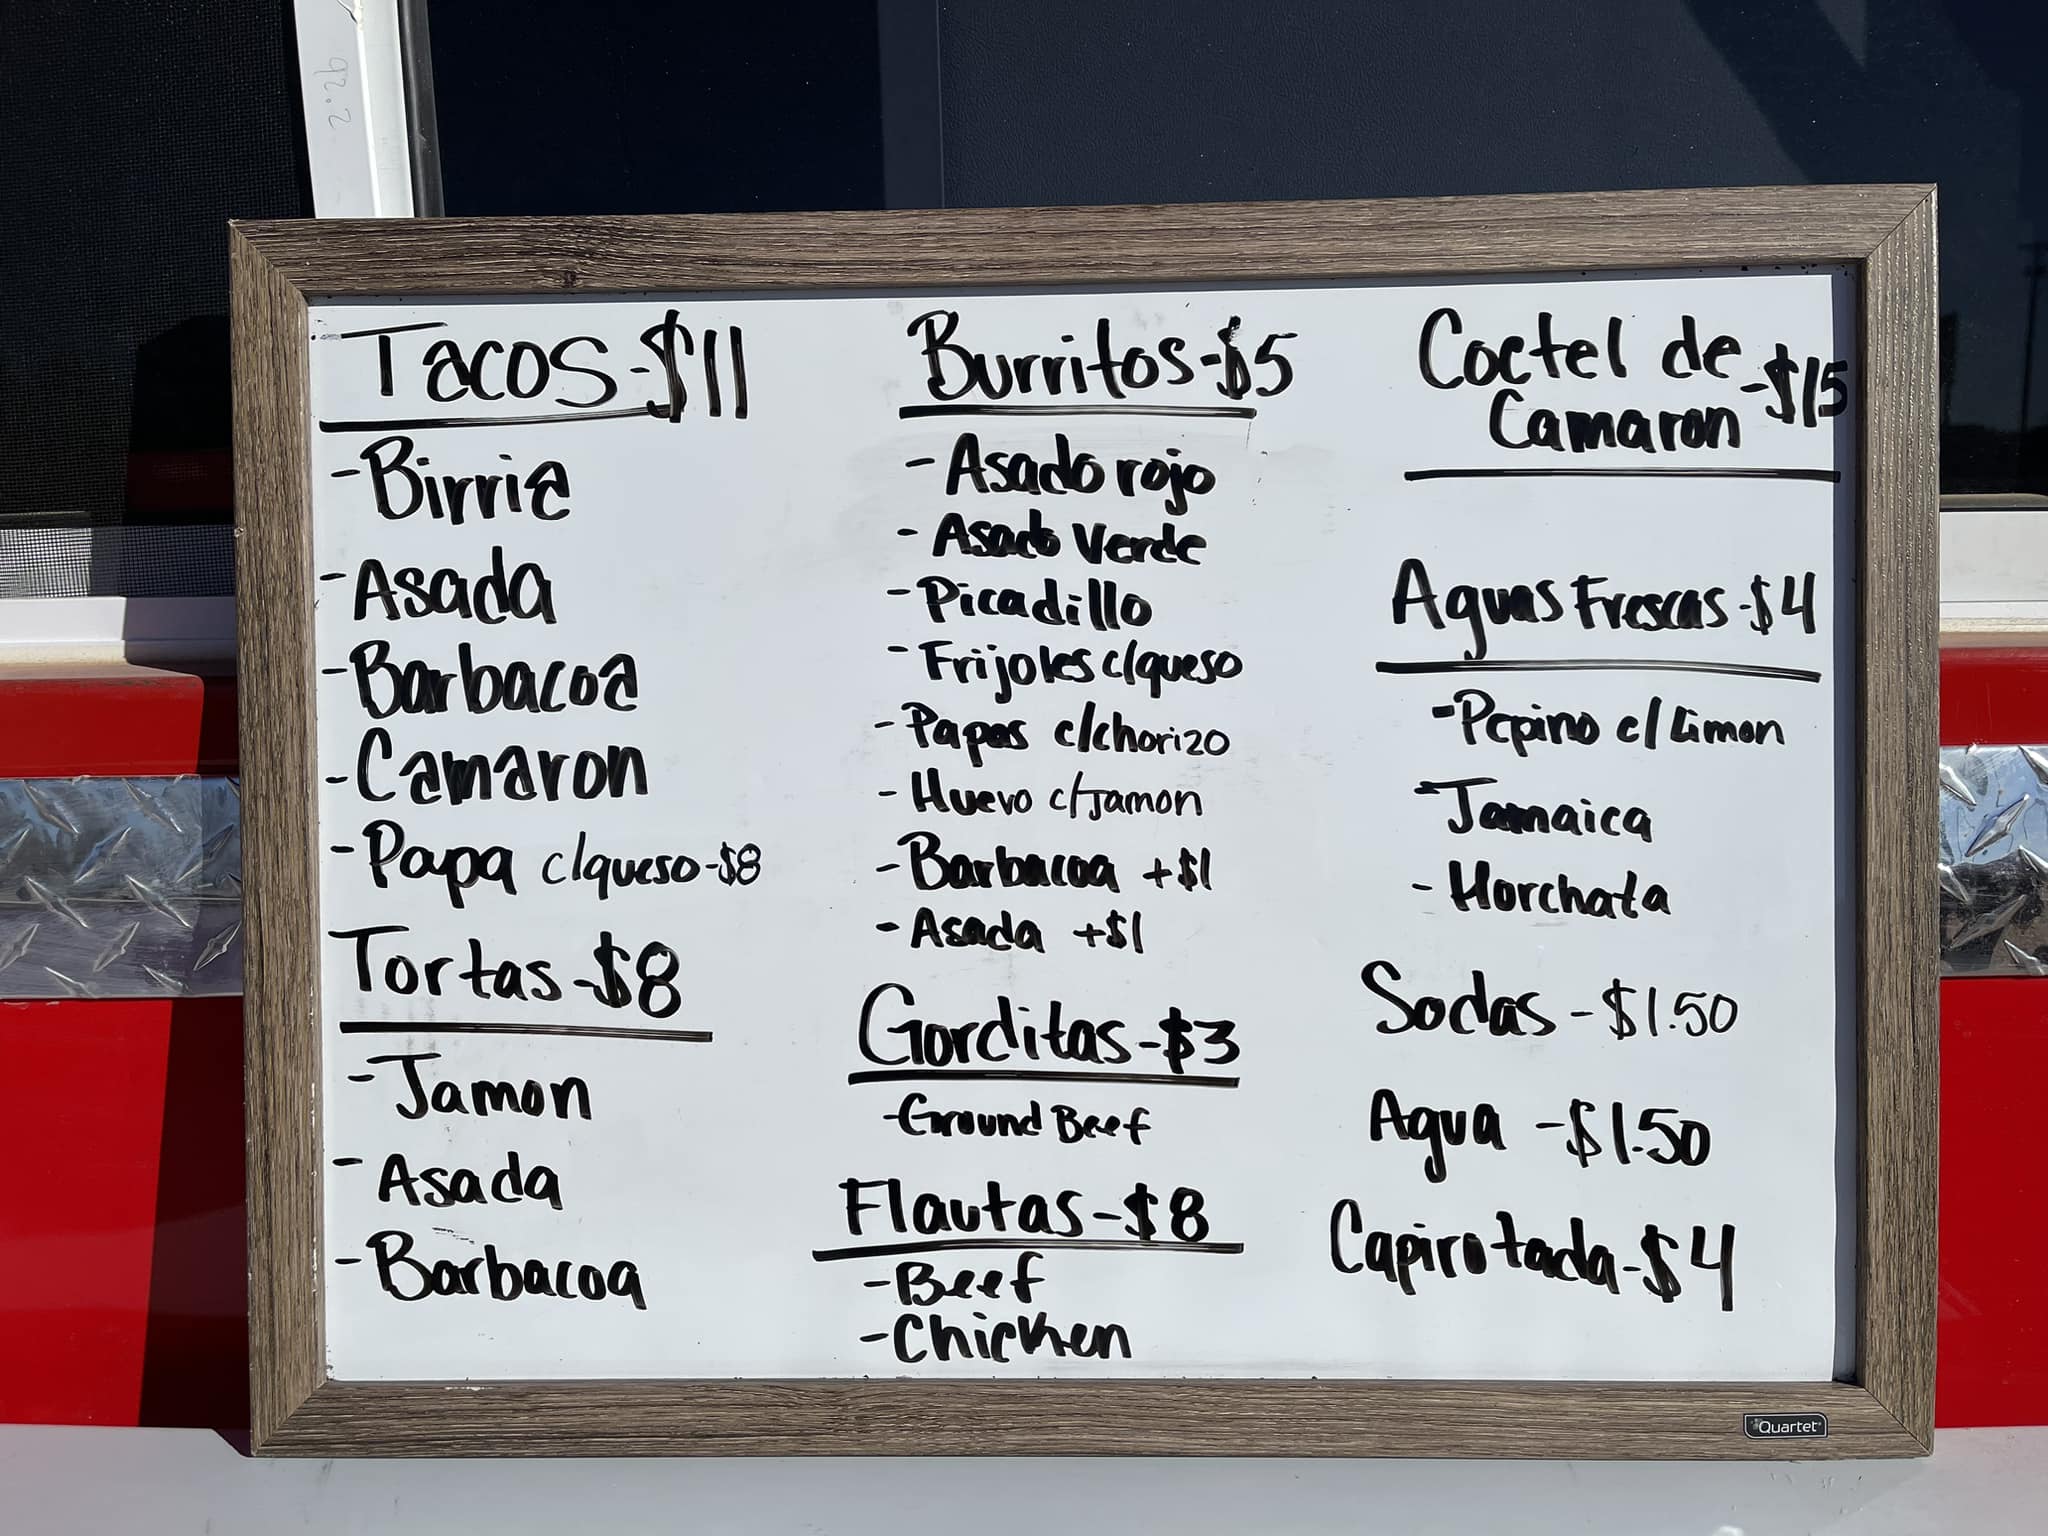 Tacos-$11
-Birria
-Asada
-Barbacoa
-Camaron
-Papa c/queso-$8
Tortas-$8
-Jamon
-Asada
-Barbacoa
Burritos-$5
-Asado rojo
-Asado Verde
-Picadillo
-Frijoles c/queso
-Papas c/chorizo
-Huevo c/Jamon
-Barbacoa +$1
-Asada +$1
Gorditas-$3
-Ground Beef
Flautas-$8
-Beef
-Chicken
Coctel de
Camaron -$15
Aguas Frescas-$4
-Pepino c/Limon
-Jamaica
-Horchata
Sodas-$1.50
Agua-$1.50
Capirotada-$4
Quartet